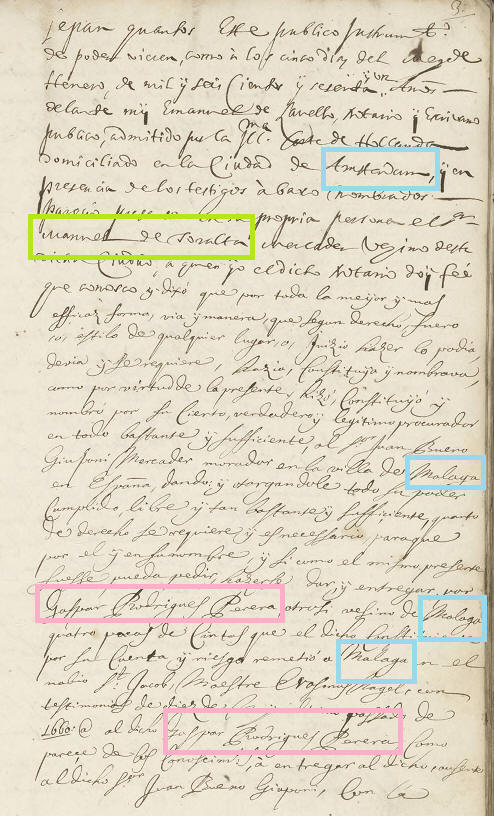 3.
Sepan quantos Este publico Instrumto.
de poder vieren, como à los cinco dias del Mes de
Henero, de mil y seis Cientos y sesenta y un Años
delante my Emanuel de Nauello, Notario y Escrivano
publico, admitido por la Illma. Corte de Hollanda
Domiciliado en la Ciudad de Amsterdam, y en
presencia de los testigos à baxo Nombrados.
Parecio presente en su propria persona el Sr.
Manuel de Toralta Mercader Vezino deste
dicha Ciudad, à quien yo el dicho Notario doy feè
que conosco y dixó que por toda la mejor y mas
efficaz forma, via y manera, que segun derecho, fuero
o, estilo de qualquier lugar, o, Juizio hazer lo podia,
devia y se requiere, hazia, Constituya y nombrava,
como por virtud de la presente, hizó, Constituyó y
nombró por su Cierto, verdadero y legitimo procurador
en todo bastante y sufficiente, al Sr. Juan Bueno
Giusoni Mercader morador en la villa de Malaga
en España, dando y otorgandole todo su poder
Cumplido, libre y tan bastante y sufficiente, quanto
de derecho se requiere y es necessario, paraque
por el y en su nombre, y si como el mismo presente
fuesse, pueda pedir, hazerse dar, y entregar, por
Gaspar Rodrigues Perera, otrosi, vesino de Malaga
quatro pacas de Cintas que el dicho
por su Cuenta y riesgo remetió à Malaga en el
navio St. Jacob, Maestre Erasmus Nagel, con
testimonio de diez de passado de
1660:@ al dicho Gaspar Rodrigues Perera como
pareçe de los Conoscimtos, à entregar al dicho, ausente
al dicho Sor Juan Bueno Giuponi, Con la